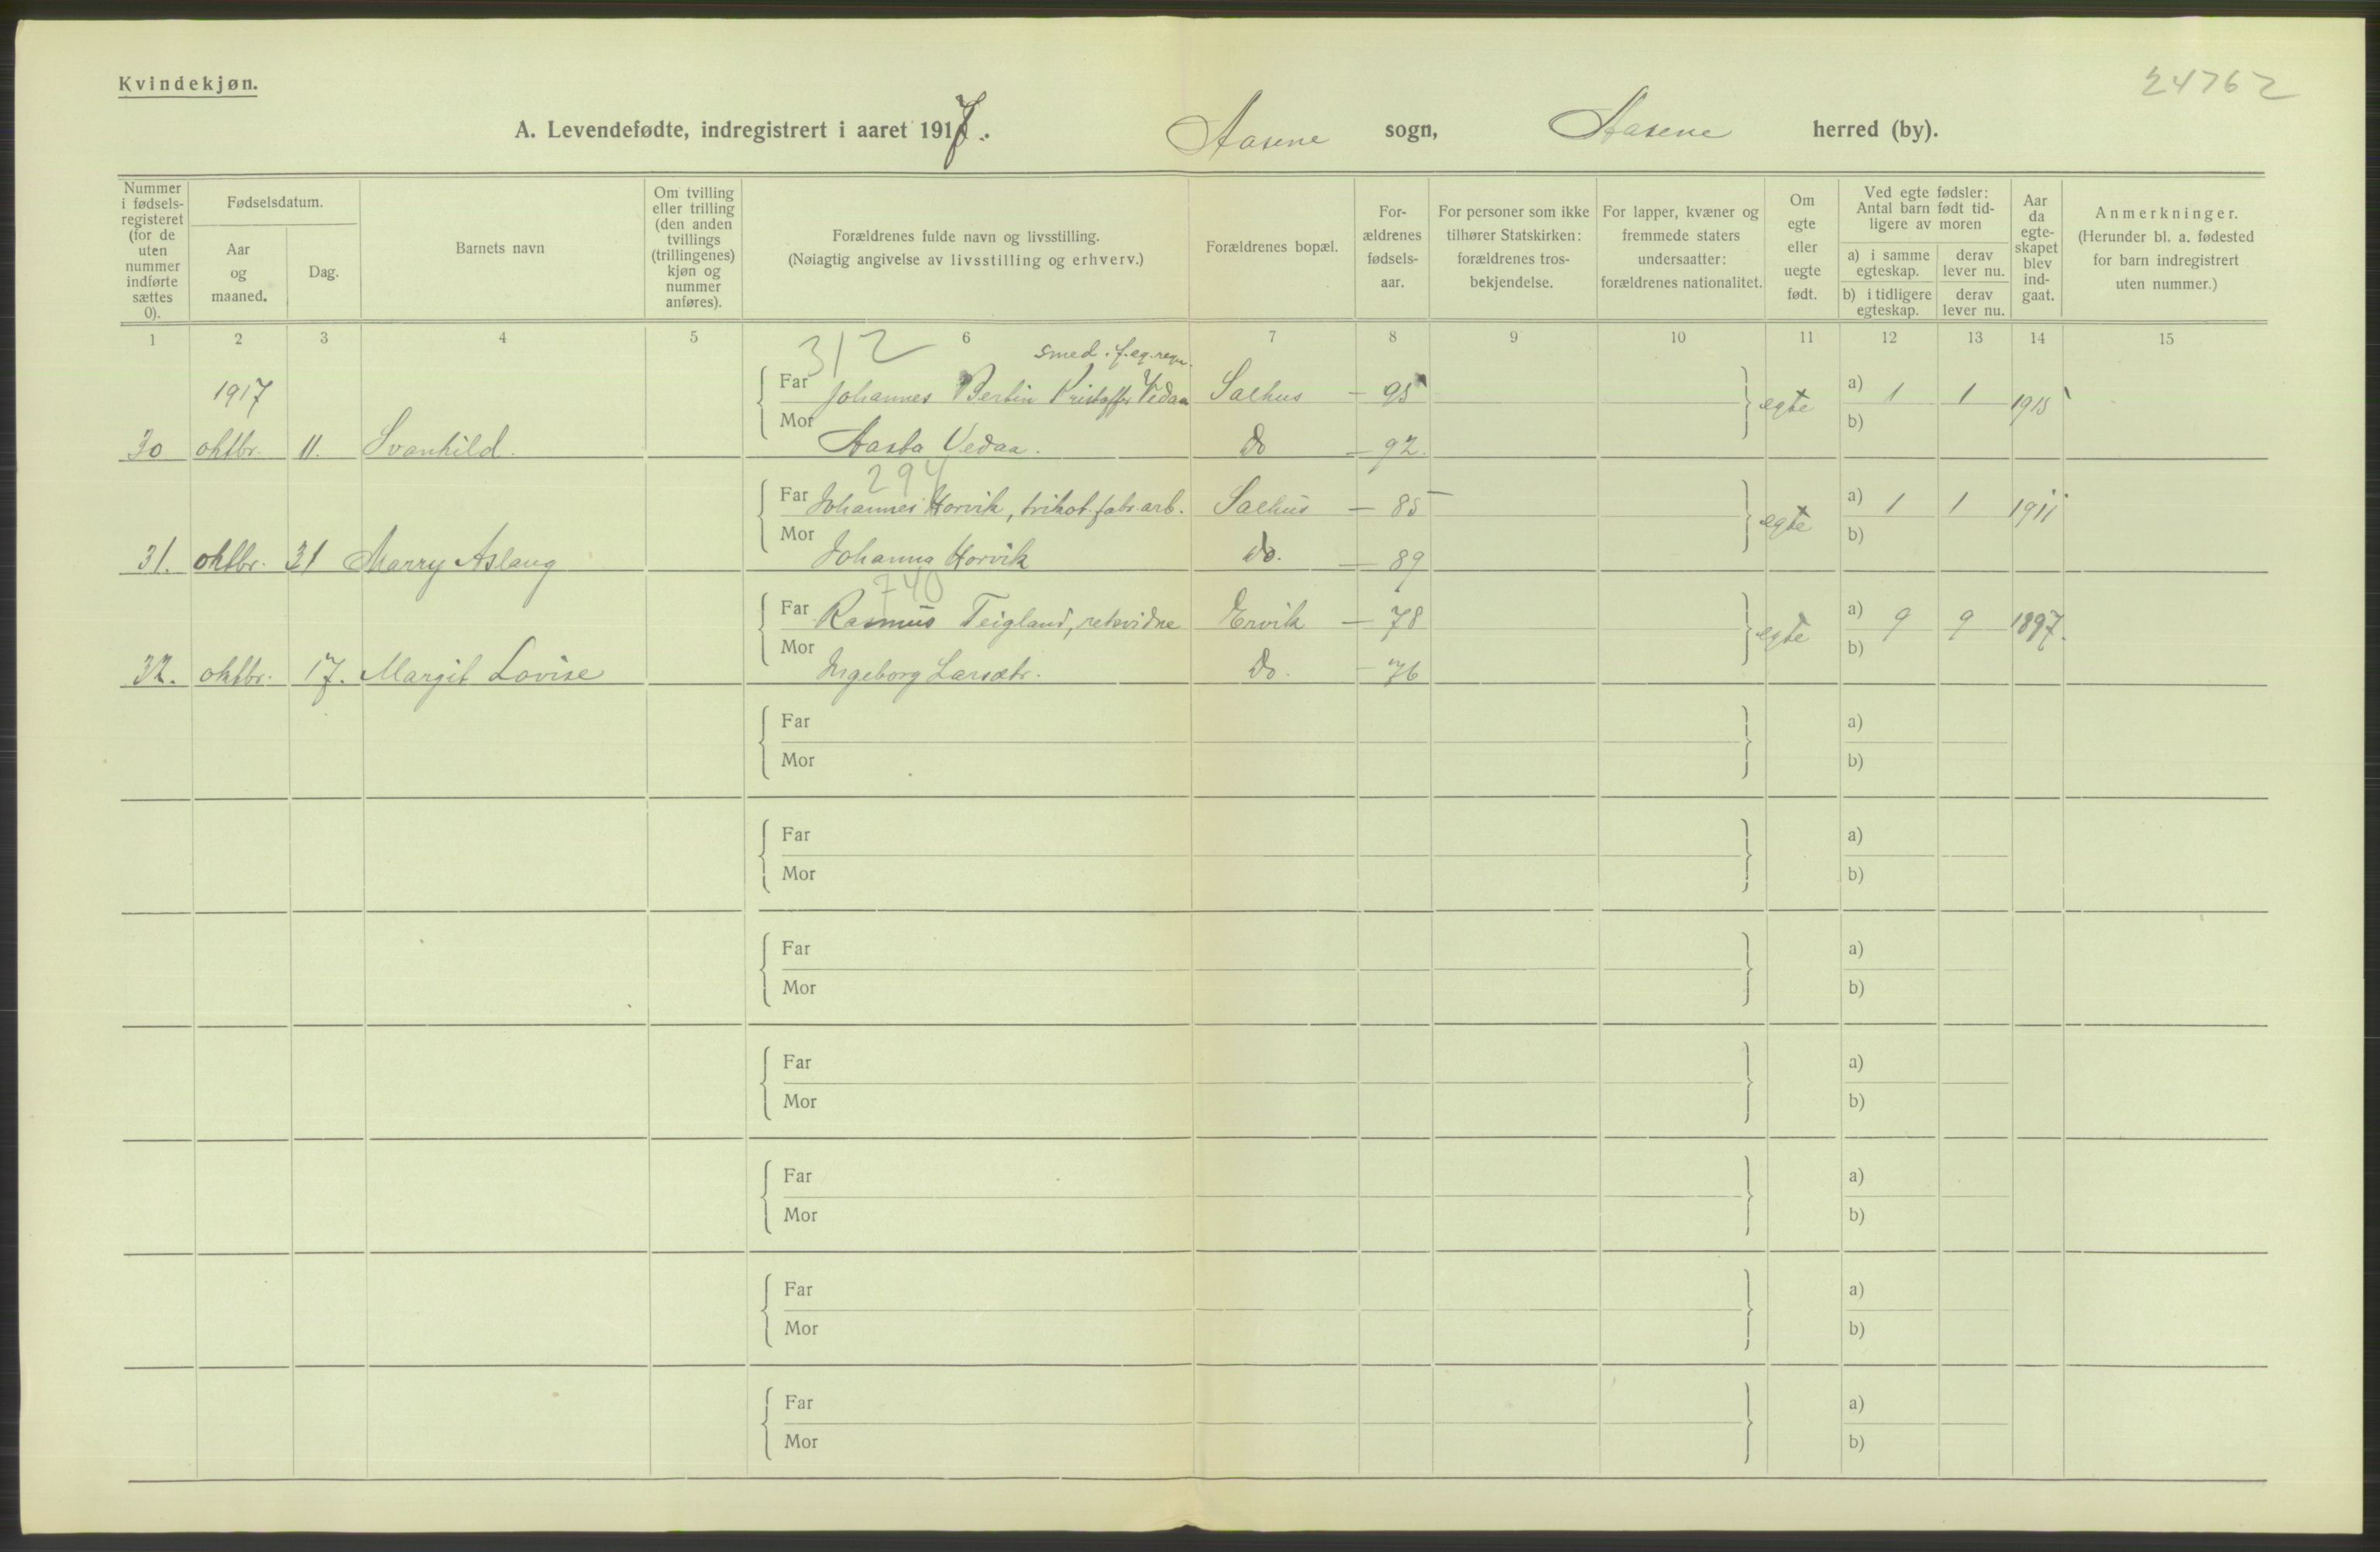 Kvindekjøn.
24762
A. Levendefødte, indregistrert i aaret 1917. Aasene sogn, Aasene herred (by).
Nummer i fødsels-registeret (for de uten nummer indførte sættes 0).
Fødselsdatum.
Aar og maaned.
Dag.
Barnets navn
Om tvilling eller trilling (den anden tvillings (trillingenes) kjøn og nummer anføres).
Forældrenes fulde navn og livsstilling.
(Nøiagtig angivelse av livsstilling og erhverv.)
Forældrenes bopæl.
For-ældrenes fødsels-aar.
For personer som ikke tilhører Statskirken: forældrenes tros-bekjendelse.
For lapper, kvæner og fremmede staters undersaatter: forældrenes nationalitet.
Om egte eller uegte født.
Ved egte fødsler: Antal barn født tid-ligere av moren
a) i samme egteskap.
derav lever nu.
b) i tidligere egteskap.
derav lever nu.
Aar da egte-skapet blev ind-gaat.
Anmerkninger.
(Herunder bl. a. fødested for barn indregistrert uten nummer.)
1 2 3 4 5 6 7 8 9 10 11 12 13 14 15
312 smed.
1917 Far Johannes Bertin Kristoffer Vedaa Salhus — 95 egte a) 1 1 1915
30 oktbr. 11. Svanhild. Mor Aasta Vedaa. Do — 92. b)
294
Far Johannes Horvik, trikot.fabr.arb. Salhus — 85 egte a) 1 1 1911
31. oktbr. 31 Marry Aslaug Mor Johanna Horvik do. — 89 b)
740
Far Rasmus Teigland, Ervik — 78 egte a) 9 9 1897.
32. oktbr. 17. Margit Lovise Mor Ingeborg Larsdtr. Do. — 76 b)
Far a)
Mor b)
Far a)
Mor b)
Far a)
Mor b)
Far a)
Mor b)
Far a)
Mor b)
Far a)
Mor b)
Far a)
Mor b)